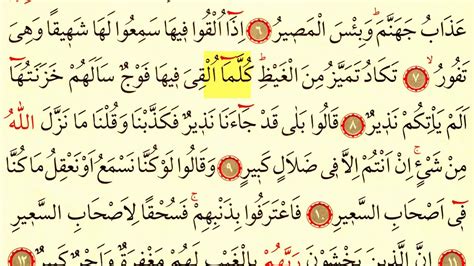 عَذَابُ جَهَنَّمَۜ وَبِئْسَ الْمَصٖيرُ ﴿٦﴾ اِذَٓا اُلْقُوا فٖيهَا سَمِعُوا لَهَا شَهٖيقًا وَهِىَ
تَفُورُۙ ﴿٧﴾ تَكَادُ تَمَيَّزُ مِنَ الْغَيْظِۜ كُلَّمَٓا اُلْقِىَ فٖيهَا فَوْجٌ سَاَلَهُمْ خَزَنَتُهَٓا
اَلَمْ يَأْتِكُمْ نَذٖيرٌ ﴿٨﴾ قَالُوا بَلٰى قَدْ جَٓاءَنَا نَذٖيرٌ فَكَذَّبْنَا وَقُلْنَا مَا نَزَّلَ اللّٰهُ
مِنْ شَیْءٍۚ اِنْ اَنْتُمْ اِلَّا فٖى ضَلَالٍ كَبٖيرٍ ﴿٩﴾ وَقَالُوا لَوْ كُنَّا نَسْمَعُ اَوْ نَعْقِلُ مَا كُنَّا
فٖٓى اَصْحَابِ السَّعٖيرِ ﴿١٠﴾ فَاعْتَرَفُوا بِذَنْبِهِمْۚ فَسُحْقًا لِاَصْحَابِ السَّعٖيرِ
﴿١١﴾ اِنَّ الَّذٖينَ يَخْشَوْنَ رَبَّهُمْ بِالْغَيْبِ لَهُمْ مَغْفِرَةٌ وَاَجْرٌ كَبٖيرٌ ﴿١٢﴾